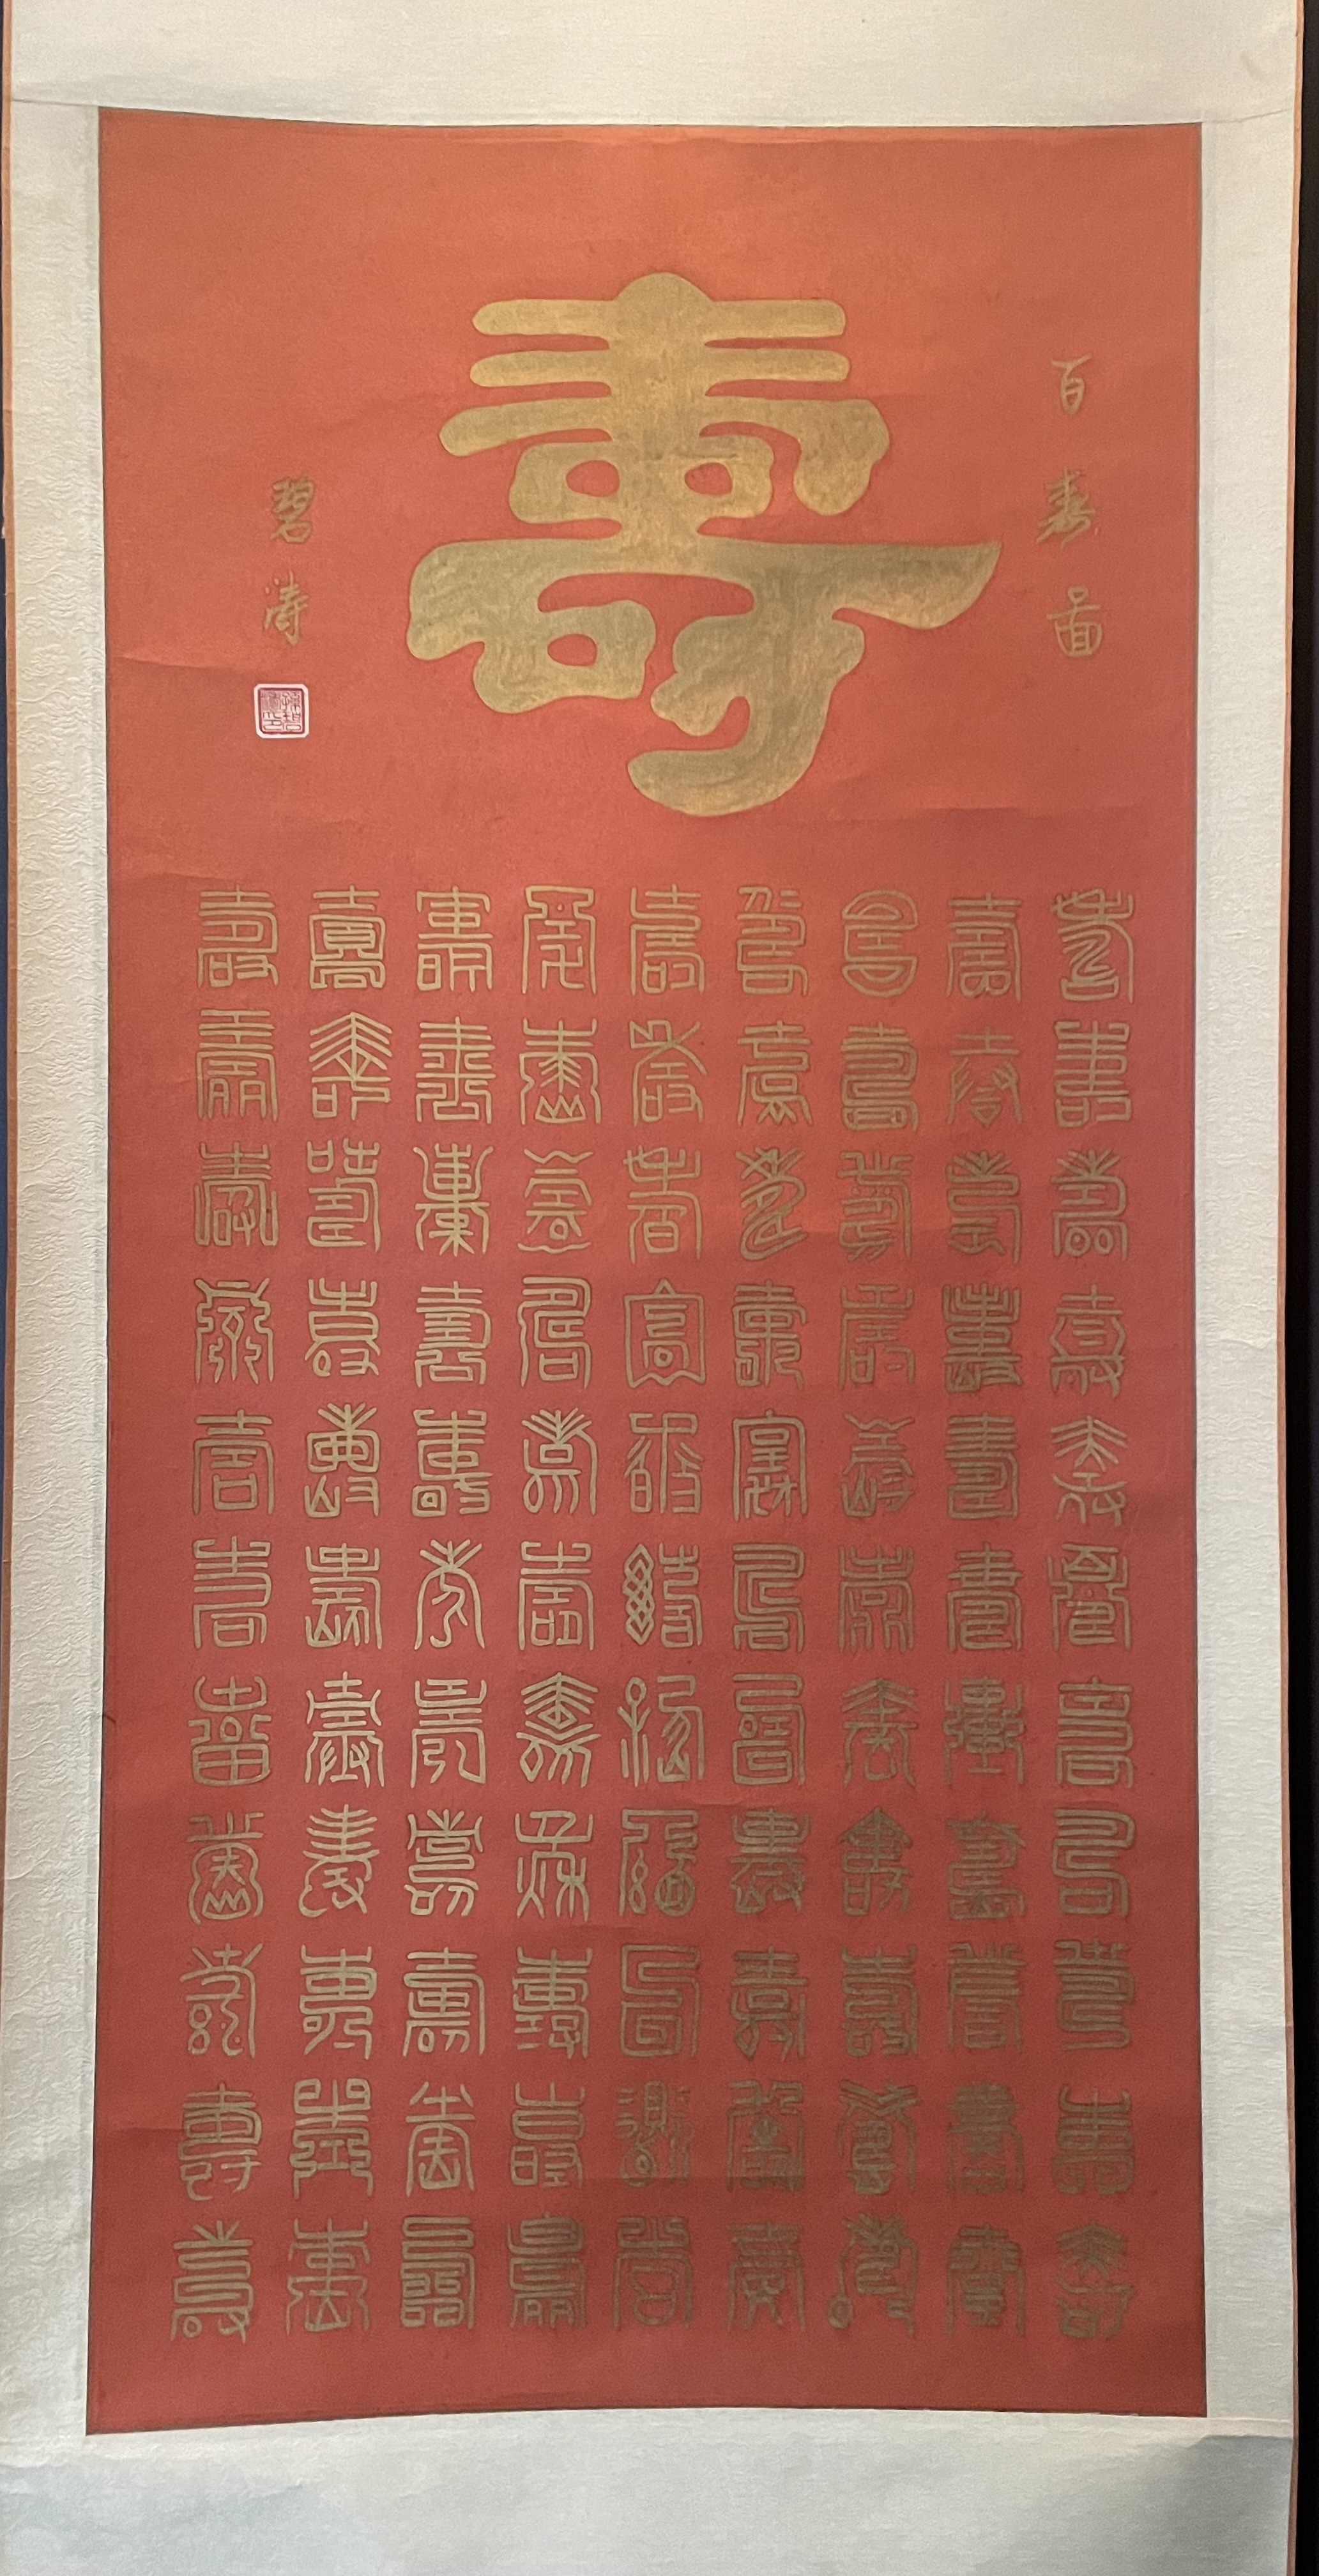 百壽圖
壽
壽壽壽壽壽壽壽壽壽壽壽
壽壽壽壽壽壽壽壽壽壽壽
壽壽壽壽壽壽壽壽壽壽壽
壽壽壽壽壽壽壽壽壽壽壽
壽壽壽壽壽壽壽壽壽壽壽
壽壽壽壽壽壽壽壽壽壽壽
壽壽壽壽壽壽壽壽壽壽壽
壽壽壽壽壽壽壽壽壽壽壽
壽壽壽壽壽壽壽壽壽壽壽
碧濤